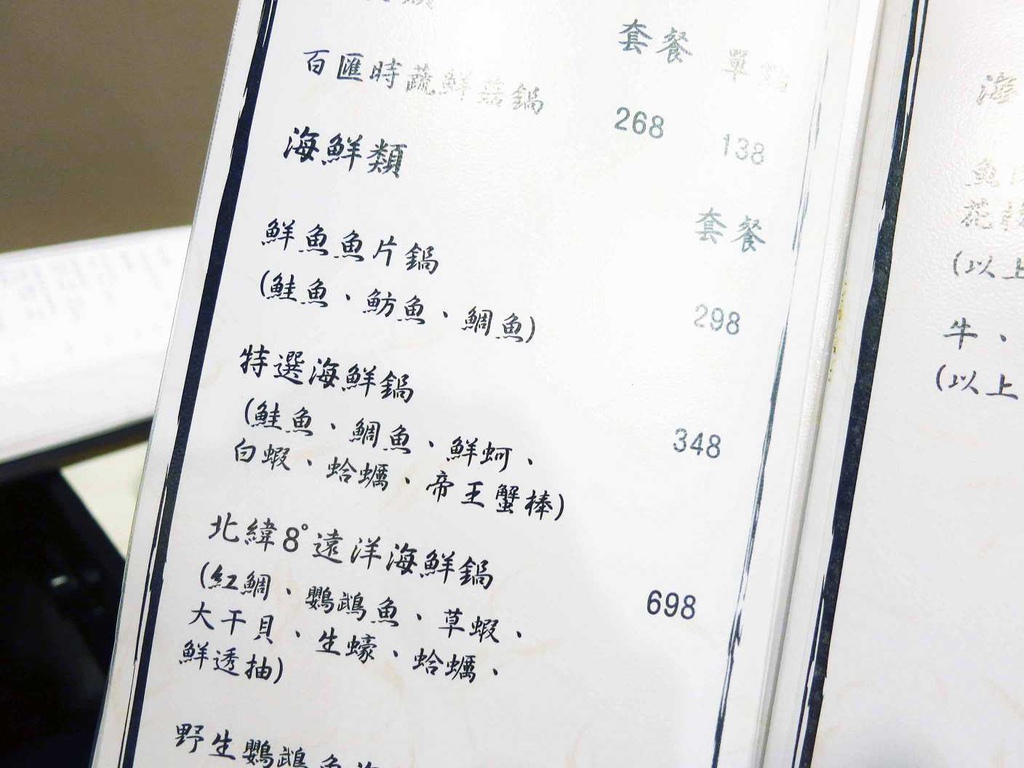 套餐 單點
百匯時蔬鮮菇鍋 268 138
海鮮類 套餐
鮮魚魚片鍋 298
(鮭魚、魴魚、鯛魚)
特選海鮮鍋 348
(鮭魚、鯛魚、鮮蚵、
白蝦、蛤蠣、帝王蟹棒)
北緯8°遠洋海鮮鍋 698
(紅鯛、鸚鵡魚、草蝦、
大干貝、生蠔、蛤蠣、
鮮透抽)
野生鸚鵡魚海
海
魚
花枝
(以上
牛、
(以上